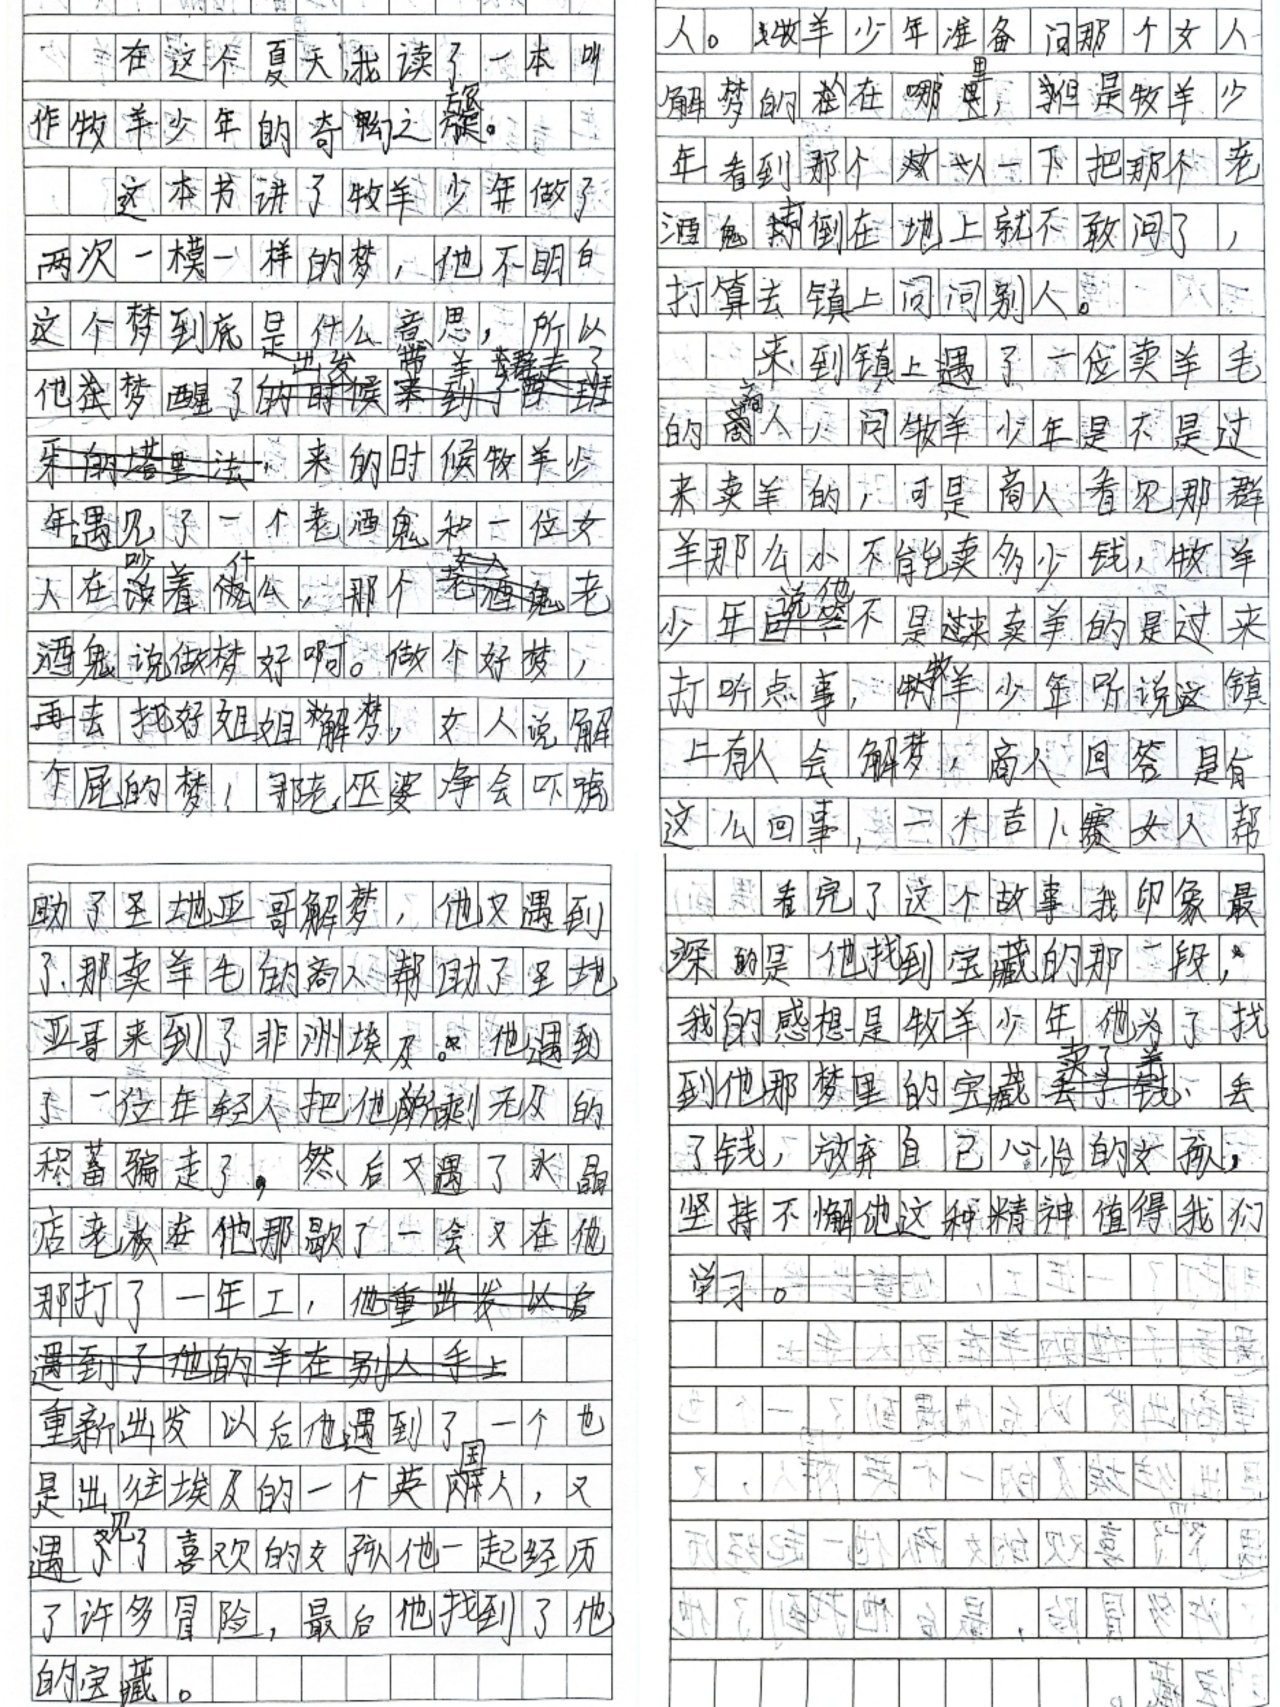 在这个夏天,我读了一本叫
作牧羊少年的奇幻之旅。
这本书讲了牧羊少年做了
两次一模一样的梦，他不明白
这个梦到底是什么意思，所以
出发 带羊 走了
他在梦醒了的时候来到了西班
牙的塔里法，来的时候牧羊少
年遇见了一个老酒鬼和一位女
人在吵着什么，那个老酒鬼老
酒鬼说做梦好啊。做个好梦，
再去找好姐姐解梦，女人说解
个屁的梦，那老巫婆净会吓唬
人。牧羊少年准备问那个女人
解梦的在哪里，但是牧羊少
年看到那个女人一下把那个老
酒鬼打倒在地上就不敢问了，
打算去镇上问问别人。
来到镇上遇了一位卖羊毛
的商人，问牧羊少年是不是过
来卖羊的，可是商人看见那群
羊那么小不能卖多少钱，牧羊
说他
少年回答不是过来卖羊的是过来
打听点事，牧羊少年听说这镇
上有人会解梦，商人回答是有
这么回事，一大吉卜赛女人帮
助了圣地亚哥解梦，他又遇到
了那卖羊毛的商人帮助了圣地
亚哥来到了非洲埃及。他遇到
了一位年轻人把他所剩无及的
积蓄骗走了，然后又遇了水晶
店老板在他那歇了一会又在他
那打了一年工，他重出发以后
遇到了他的羊在别人手上
重新出发以后他遇到了一个也
是出往埃及的一个英国人，又
遇见了喜欢的女孩他一起经历
了许多冒险，最后他找到了他
的宝藏。
看完了这个故事我印象最
深的是他找到宝藏的那一段，
我的感想是牧羊少年他为了找
卖了羊
到他那梦里的宝藏丢了钱、丢
了钱，放弃自己心怡的女孩，
坚持不懈他这种精神值得我们
学习。